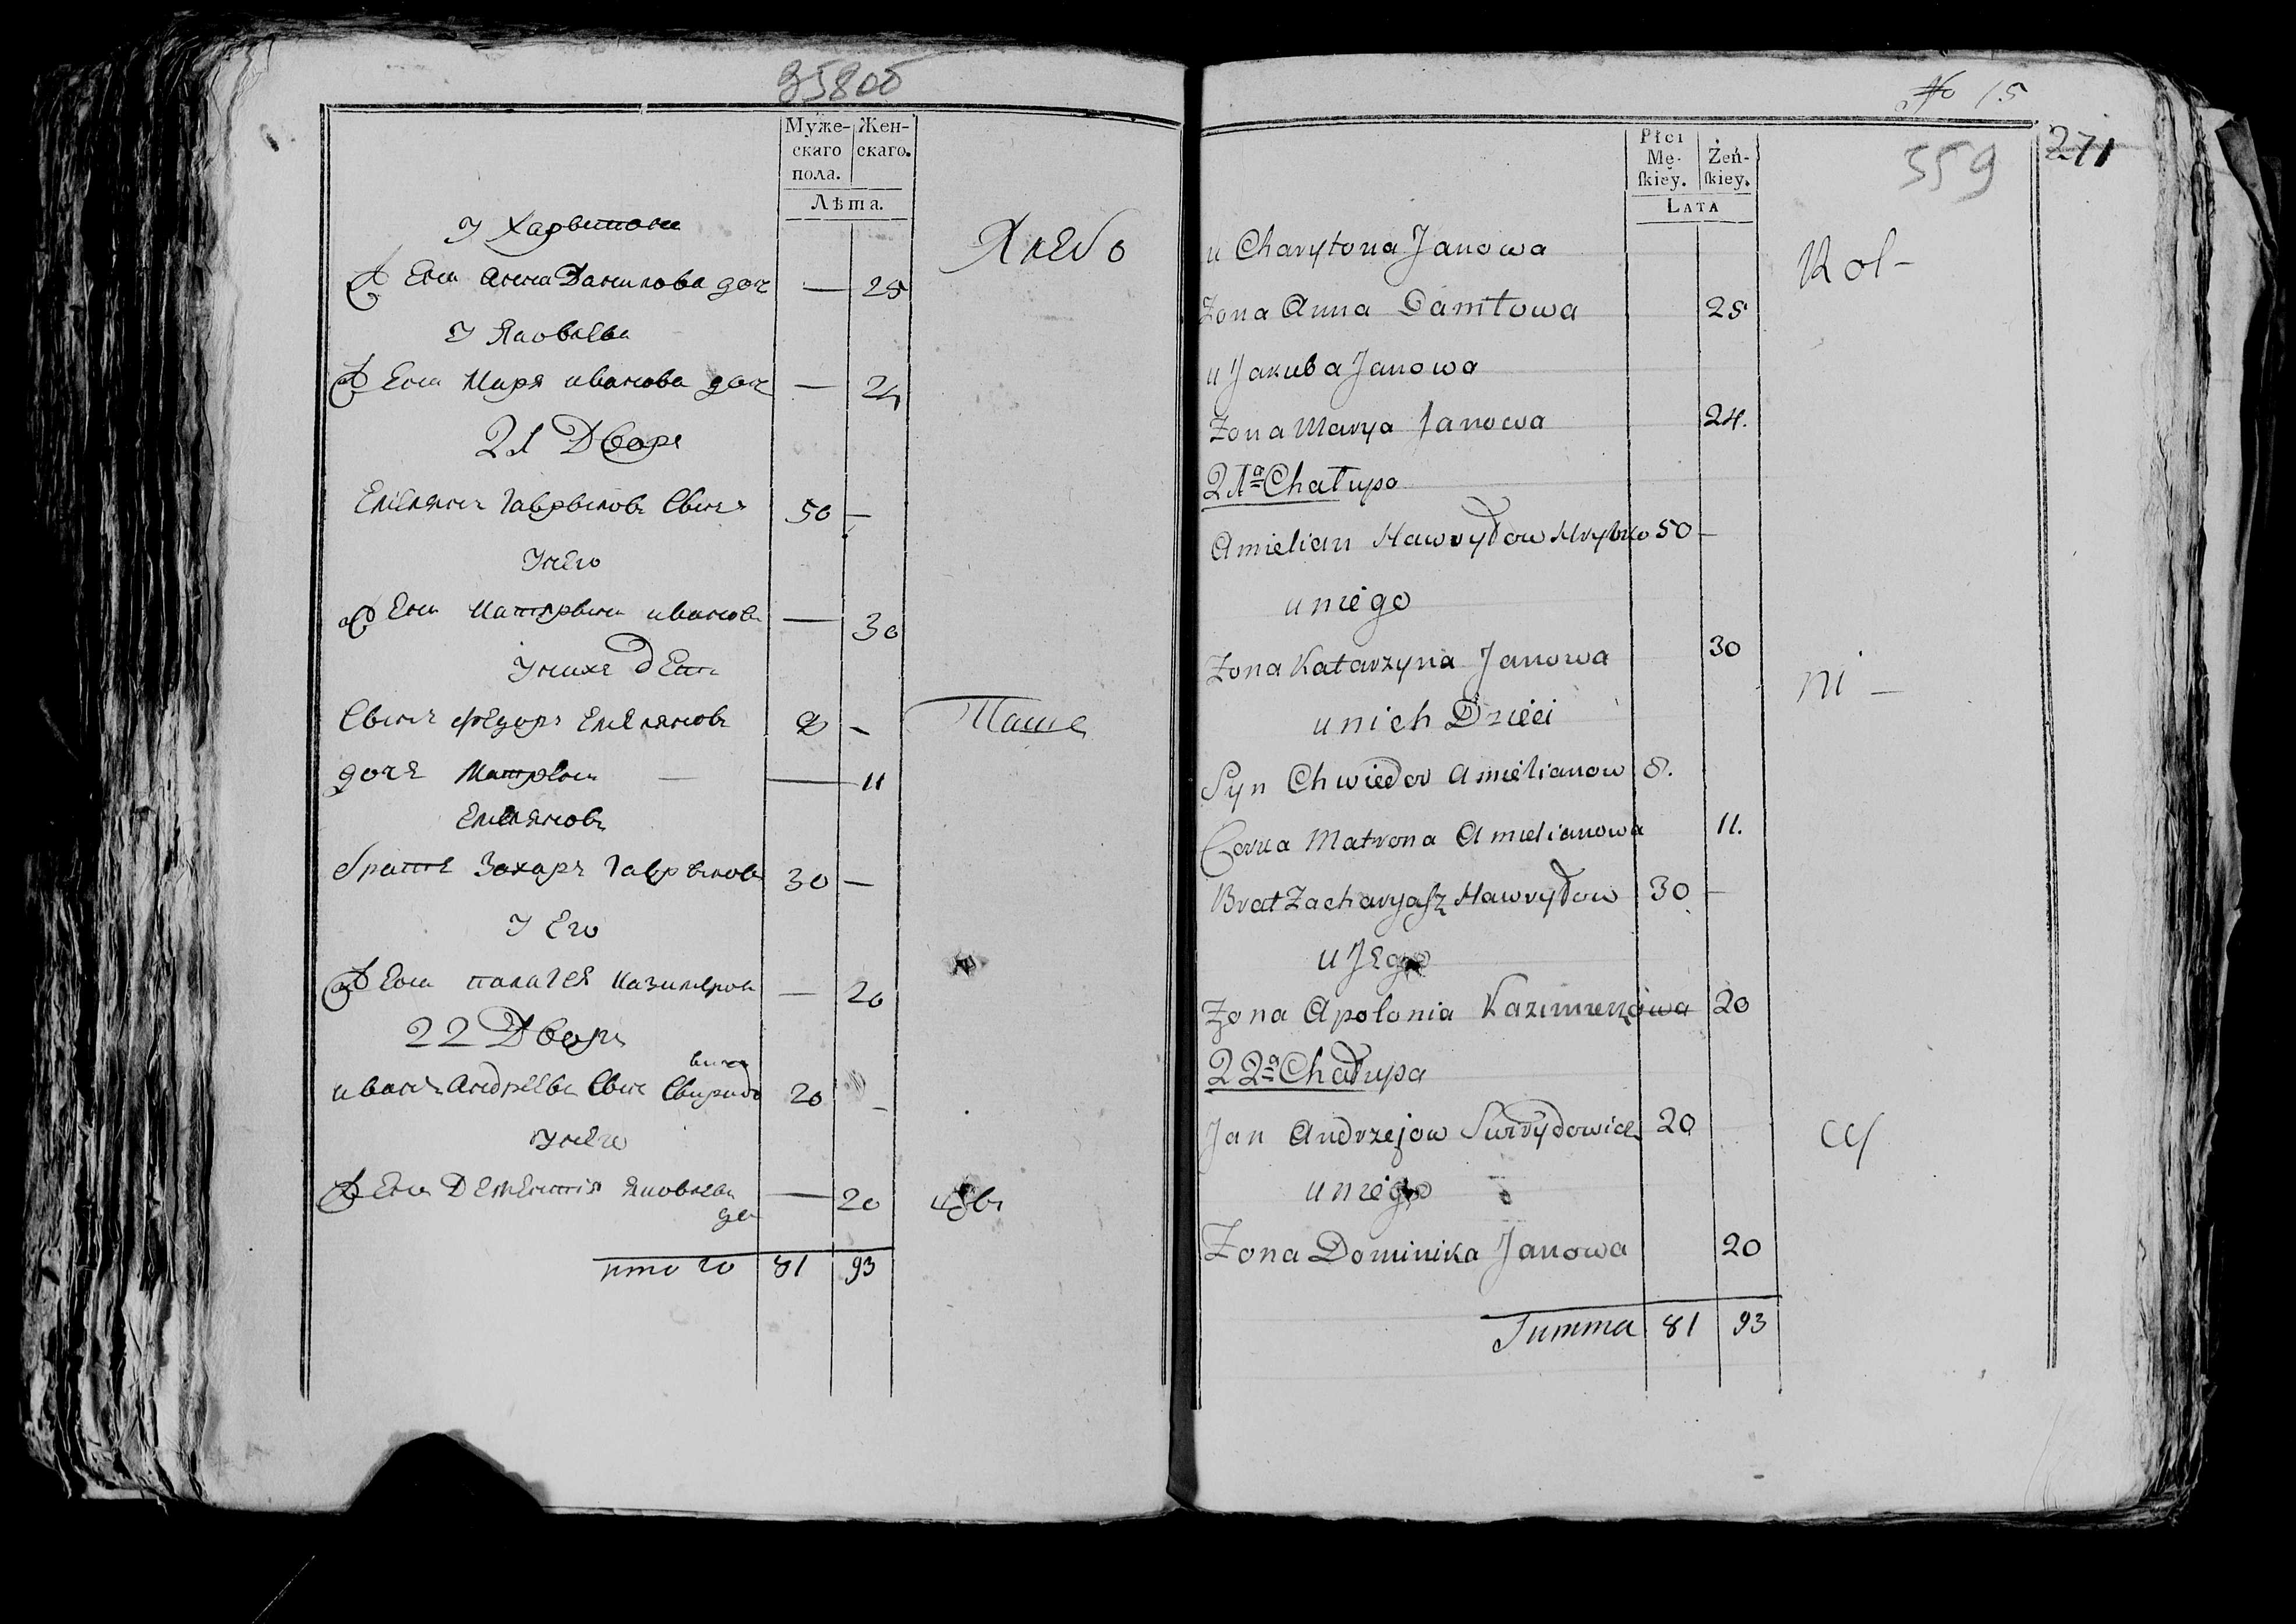 358об
Муже-
скаго
пола.
Жен-
скаго.
Лѣта.
У Харытона
Хлебо
Жена Анна Данилова доч — 25
У Яковлева
Жена Маря иванова доч — 24
21 Дворъ
Емелянъ Гаврыловъ Сынъ 50 —
Унего
Жена Катэрына иванова — 30
Унихъ Дети
Сынъ Федоръ Емеляновъ 8 —
Паше
дочь Матрона — 11
Емелянова
братъ Захаръ Гаврыловъ 30 —
У Его
Жена палагея казимерова — 20
22 Дворъ
иванъ Андреевъ Сынъ Свиридо 20 —
вичъ
Унего
Жена Дементія Яковлева — 20
до
итого 81 93
№ 15
271
559
Płci
Mę-
ſkiey.
Żeń-
ſkiey.
LATA
u Charytona Janowa
Kol-
Żona Anna Daniłowa 25
u Jakuba Janowa
Żona Marya Janowa 24.
21a Chałupa
Amielian Hawryłow Hrybko 50 —
u niego
Żona Katarzyna Janowa 30
ni —
u nich Dzieci
Syn Chwiedor Amielianow 8.
Corka Matrona Amielianowa 11.
Brat Zacharyaſz Hawryłow 30 —
u Jego
Żona Apolonia Kazimierzowa 20
22a Chałupa
Jan Andrzejow Swirydowicz 20
cy
u niego
Żona Dominika Janowa 20
Summa 81 93